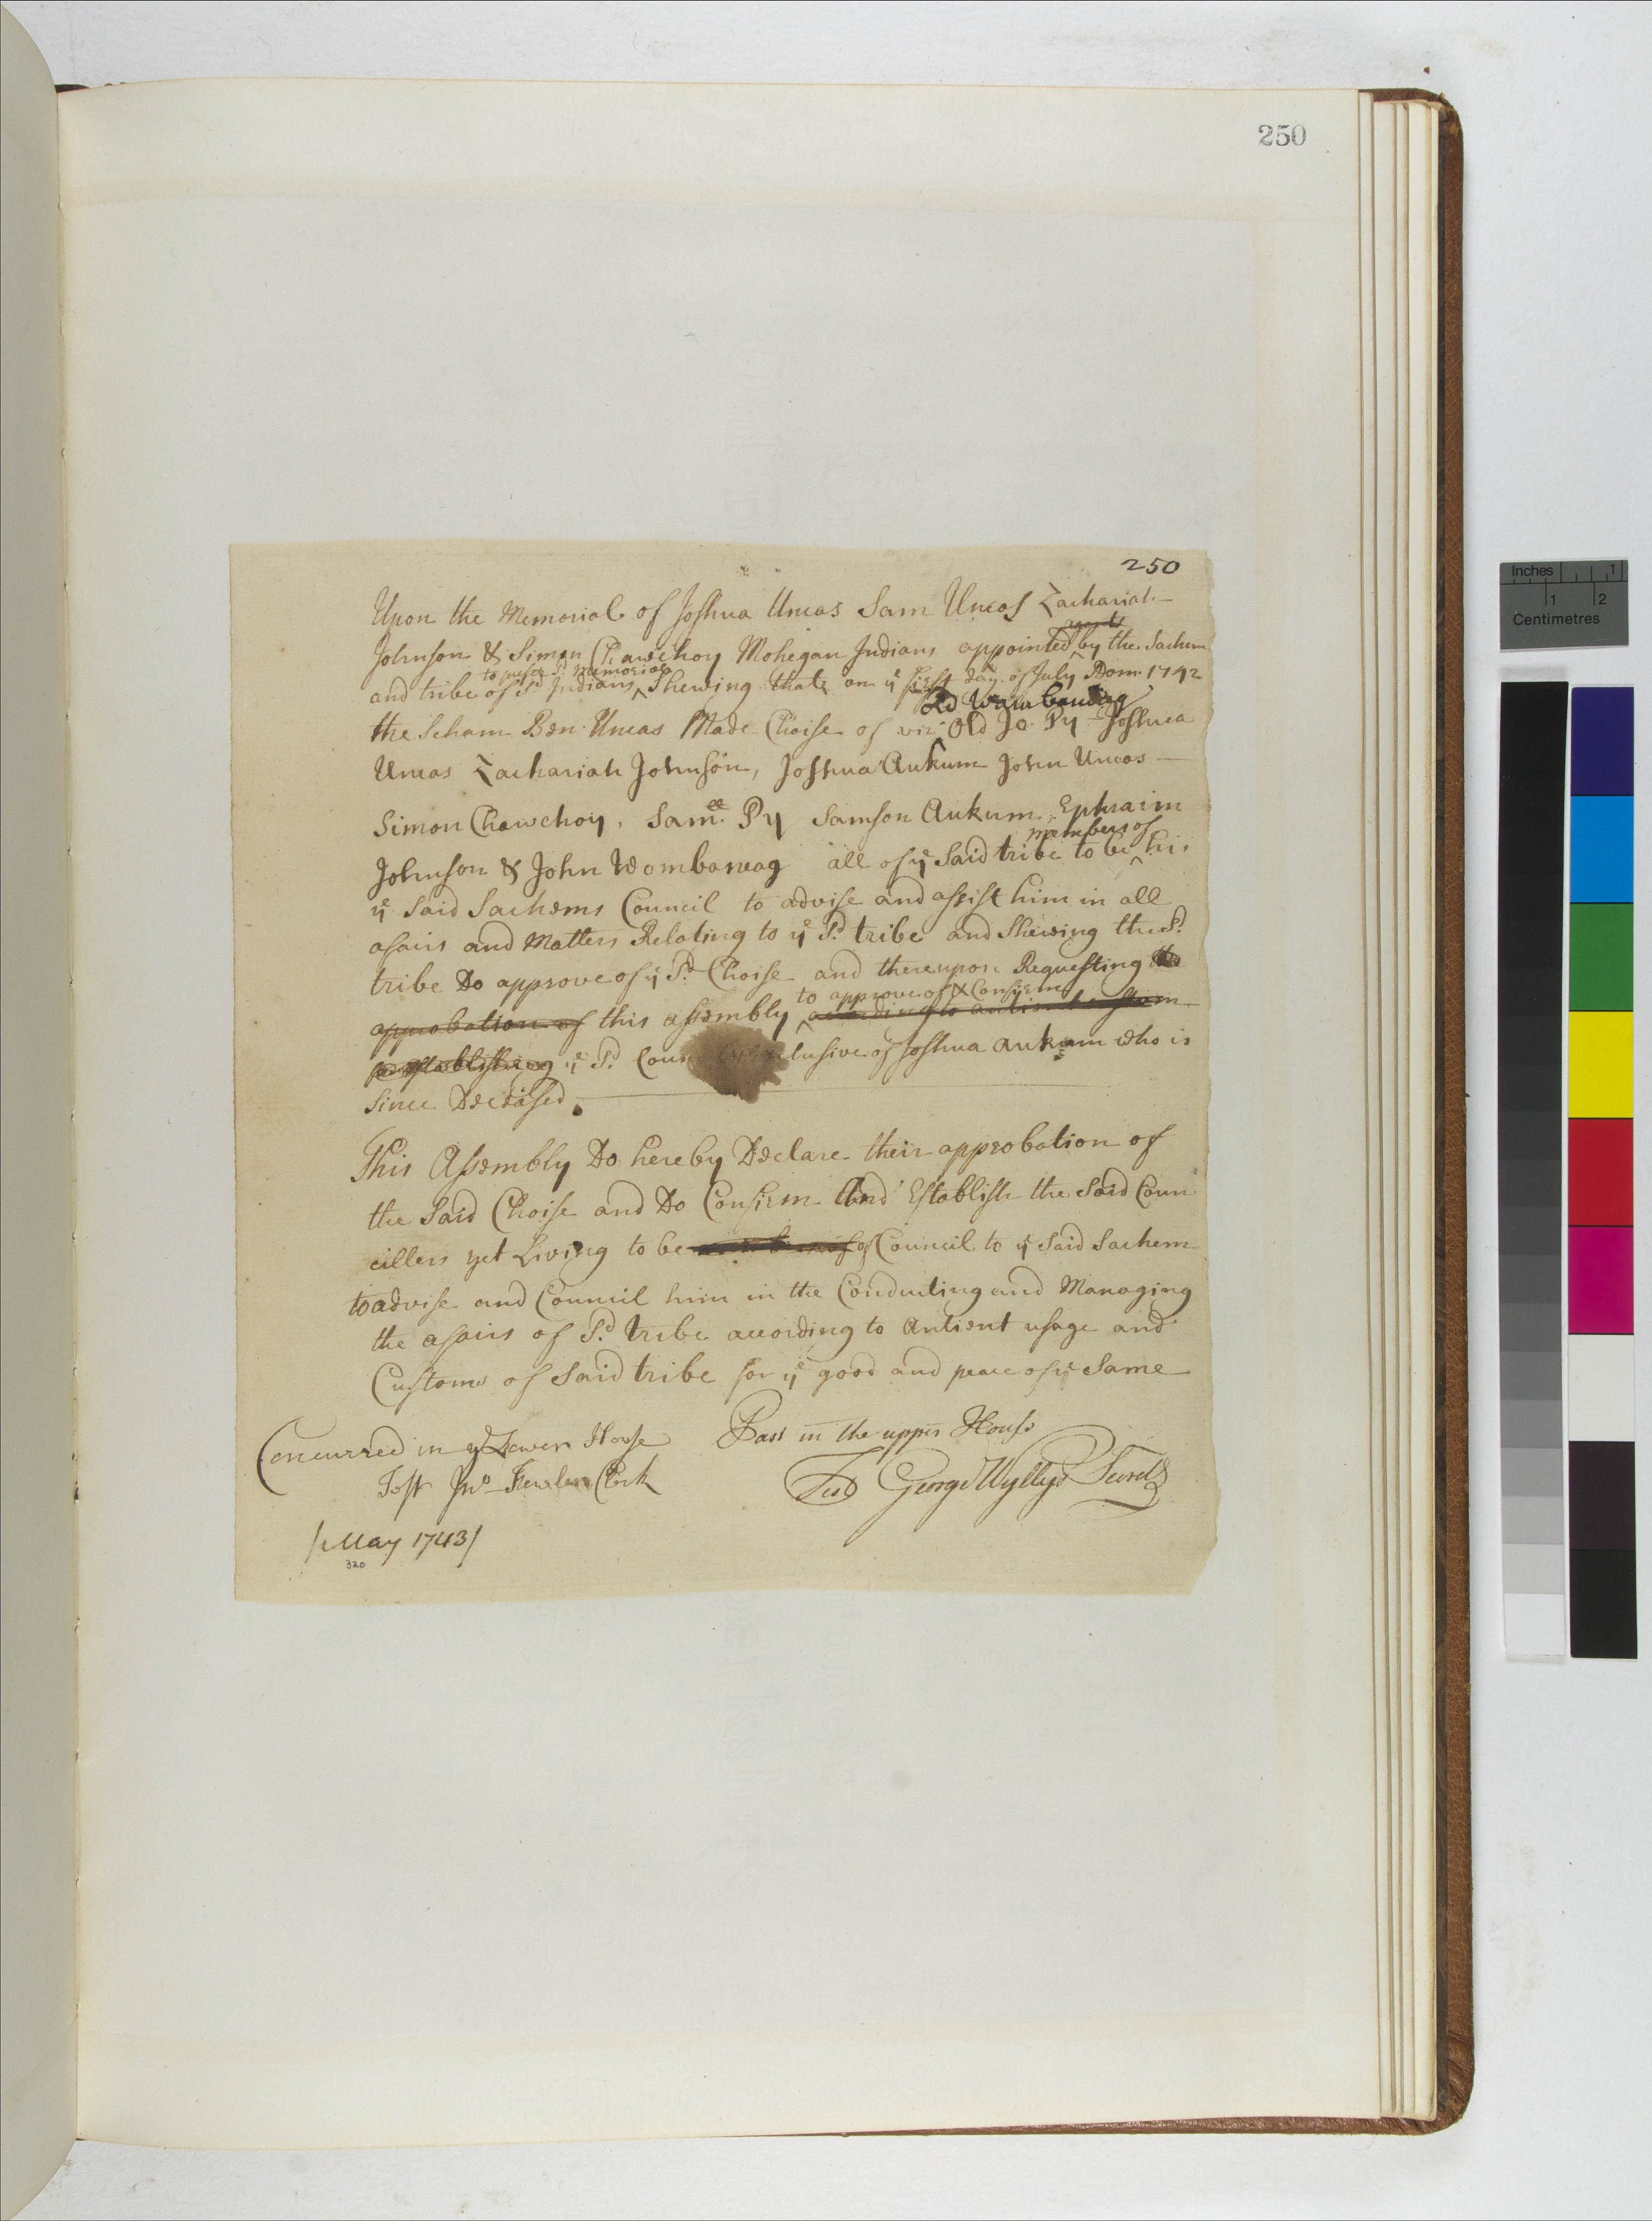 250
250
Upon the Memorial of Joshua Uncas Sam Uncas Zachariah
agents
Johnson & Simon Chawchoy Mohegan Indians appointed by the Sachem
to prefer Sd. Memorial
and tribe of Sd. Indians Shewing that on ye first day of July Dom. 1742
Old Wambawug
the Scham Ben Uncas Made Choise of viz Old Jo Py Joshua
Uncas Zachariah Johnson, Joshua Aukum John Uncas
Simon Chawchoy, Samll. Py Samson Aukum, Ephraim
members of
Johnson & John Wombaweag all of ye Said tribe to be his
ye Said Sachems Council to advise and assist him in all
afairs and Matters Relating to ye Sd. tribe and Shewing the Sd.
tribe Do approve of ye Sd. Choise and thereupon Requesting the
to approve of & Confirm
approbation of this assembly according to antient custom
establishing ye Sd. Coun exclusive of Joshua aukum who is
Since Deceased.
This Assembly Do hereby Declare their approbation of
the Said Choise and Do Confirm And Establish the Said Coun
cillers yet Living to be of Council to ye Said Sachem
to advise and Council him in the Conducting and Managing
the afairs of Sd. tribe according to Antient usage and
Customs of Said tribe for ye good and peace of ye Same
Concurred in ye Lower House
Test Jno. Fowler Clerk
Past in the upper House
Test George Wyllys Secrety
/May 1743/
320
Inches 1
1 2
Centimetres